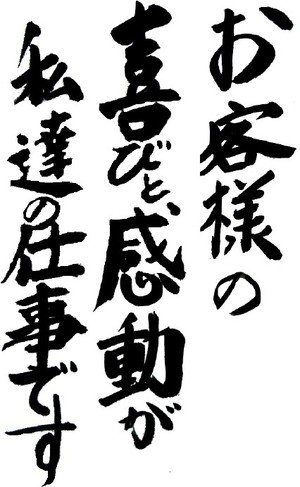 お客様の
喜びと、感動が
私達の仕事です